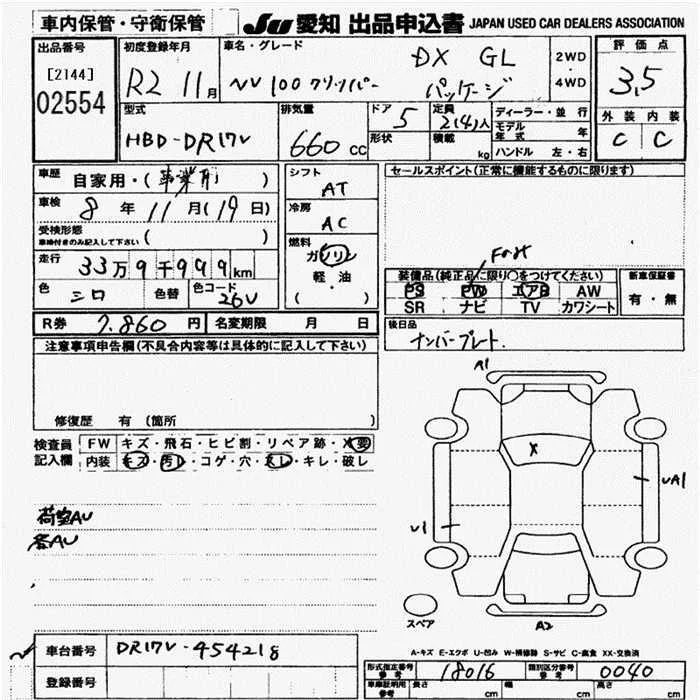 車内保管・守衛保管
JU 愛知 出品申込書 JAPAN USED CAR DEALERS ASSOCIATION
出品番号
[2144]
02554
初度登録年月
R2 11月
車名・グレード
DX GL
NV100クリッパー パッケージ
2WD
4WD
評価点
3.5
外装 内装
C C
型式
HBD-DR17V
排気量
660 CC
ドア
5
形状
定員
2(4)人
積載
kg
ディーラー・並行
モデル年式 年
ハンドル 左・右
車歴
自家用・(事業用)
車検
8年11月(19日)
受検形態
車検付きのみ記入して下さい ( )
走行
33万9千999km
色
シロ
色替
色コード
26U
シフト
AT
冷房
AC
燃料
ガソリン
軽・油
( )
セールスポイント(正常に機能するものに限ります)
Frot
装備品(純正品に限り○をつけてください)
PS PW エアB AW
SR ナビ TV カワシート
新車保証書
有・無
R券 7.860円
名変期限 月 日
後日品
ナンバープレート.
注意事項申告欄(不具合内容等は具体的に記入して下さい)
修復歴 有(箇所 )
検査員記入欄
FW キズ・飛石・ヒビ割・リペア跡・×要
内装 キズ・汚レ・コゲ・穴・スレ・キレ・破レ
荷室AU
各AU
A1
X
UA1
U1
スペア
A2
A-キズ E-エクボ U-凹み W-補修跡 S-サビ C-腐食 XX-交換済
車台番号 DR17V-454218
登録番号
形式指定番号 参考 18016
類別区分番号 参考 0040
車庫証明用 参考 長さ cm 幅 cm 高さ cm